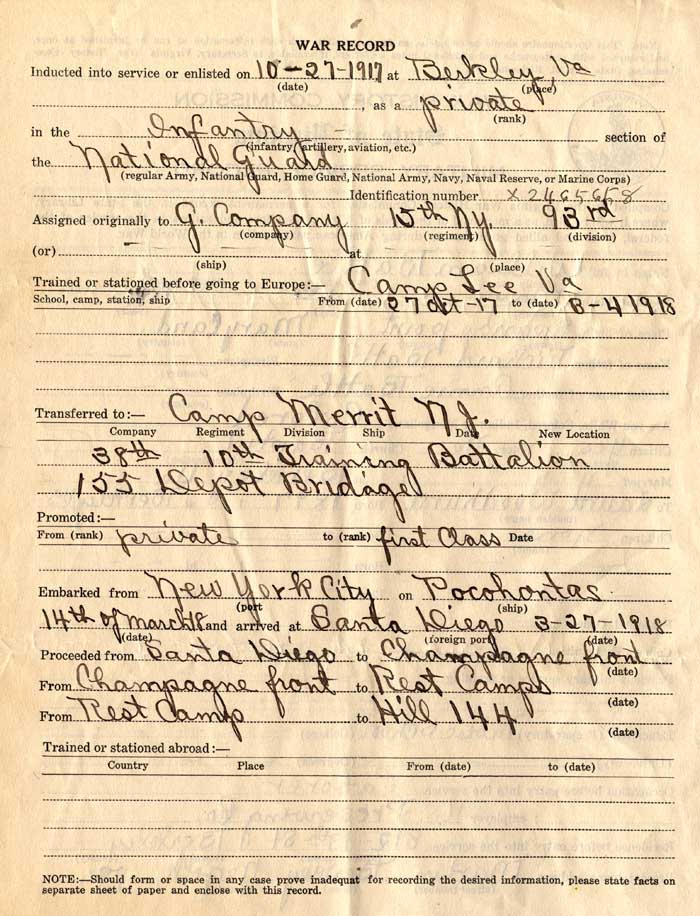 WAR RECORD
Inducted into service or enlisted on 10-27-1917 at Berkley, Va
(date) (place)
, as a private
(rank)
in the Infantry - section of
(infantry, artillery, aviation, etc.)
the National Guard
(regular Army, National Guard, Home Guard, National Army, Navy, Naval Reserve, or Marine Corps)
Identification number x 2465658
Assigned originally to G. Company 15th Ny. 93rd
(company) (regiment) (division)
(or) - at
(ship) (place)
Trained or stationed before going to Europe:— Camp Lee Va
School, camp, station, ship From (date) 27 Oct-17 to (date) 3-4 1918
Transferred to:— Camp Merrit N.J.
Company Regiment Division Ship Date New Location
38th 10th Training Battalion
155 Depot Bridage
Promoted:—
From (rank) private to (rank) first Class Date
Embarked from New York City on Pocohontas
(port (ship)
14th of March 18 and arrived at Santa Diego 3-27-1918
(date) (foreign port) (date)
Proceeded from Santa Diego to Champagne front
(date)
From Champagne front to Rest Camps
(date)
From Rest Camp to Hill 144
(date)
Trained or stationed abroad:—
Country Place From (date) to (date)
NOTE:—Should form or space in any case prove inadequat for recording the desired information, please state facts on
separate sheet of paper and enclose with this record.